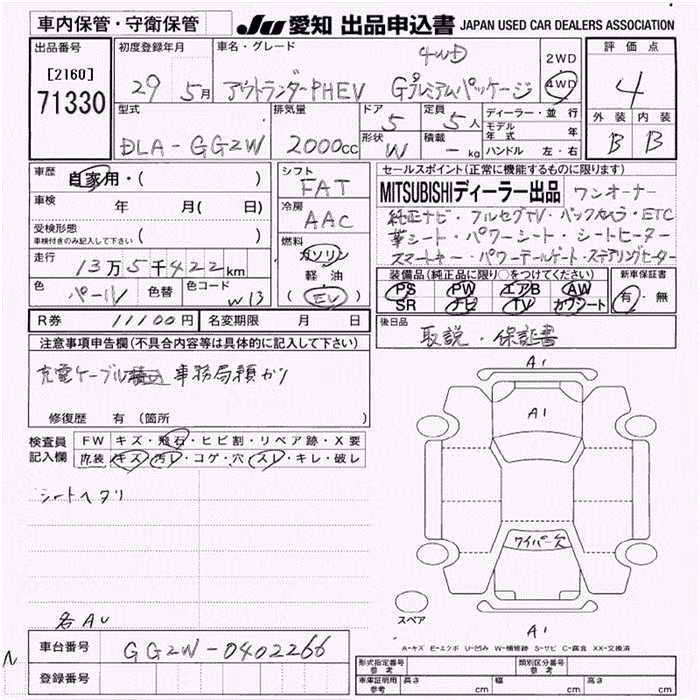 車内保管・守衛保管
JU 愛知 出品申込書 JAPAN USED CAR DEALERS ASSOCIATION
出品番号 初度登録年月 車名・グレード 評価点
[2160]
71330
29 5月 アウトランダーPHEV 4WD Gプレミアムパッケージ 2WD 4WD
4
型式 排気量 ドア 定員 ディーラー・並行 外装 内装
DLA-GG2W 2000cc 5 5人 モデル年式 年
形状 W 積載 - kg ハンドル 左・右
B B
車歴 自家用・( )
シフト FAT
セールスポイント(正常に機能するものに限ります)
MITSUBISHIディーラー出品 ワンオーナー
車検 年 月( 日)
冷房 AAC
純正ナビ・フルセグTV・バックカメラ・ETC
受検形態 ( )
車検付きのみ記入して下さい
革シート・パワーシート・シートヒーター
燃料 ガソリン
スマートキー・パワーテールゲート・ステアリングヒーター
走行 13万5千422km
軽油
(EV)
装備品(純正品に限り○をつけてください) 新車保証書
PS PW エアB AW 有・無
SR ナビ TV カワシート
色 パール 色替 色コード W13
R券 11100円 名変期限 月 日
後日品 取説・保証書
注意事項申告欄(不具合内容等は具体的に記入して下さい)
充電ケーブル 事務局預かり
修復歴 有(箇所 )
検査員 FW キズ・飛石・ヒビ割・リペア跡・X要
記入欄 内装 キズ・汚レ・コゲ・穴・スレ・キレ・破レ
シートヘタリ
各AU
A1
A1
ワイパー欠
スペア
A1
A-キズ E-エクボ U-凹み W-補修跡 S-サビ C-腐食 XX-交換済
N
車台番号 GG2W-0402266
登録番号
形式指定番号 参考 類別区分番号 参考
車庫証明用 参考 長さ cm 幅 cm 高さ cm